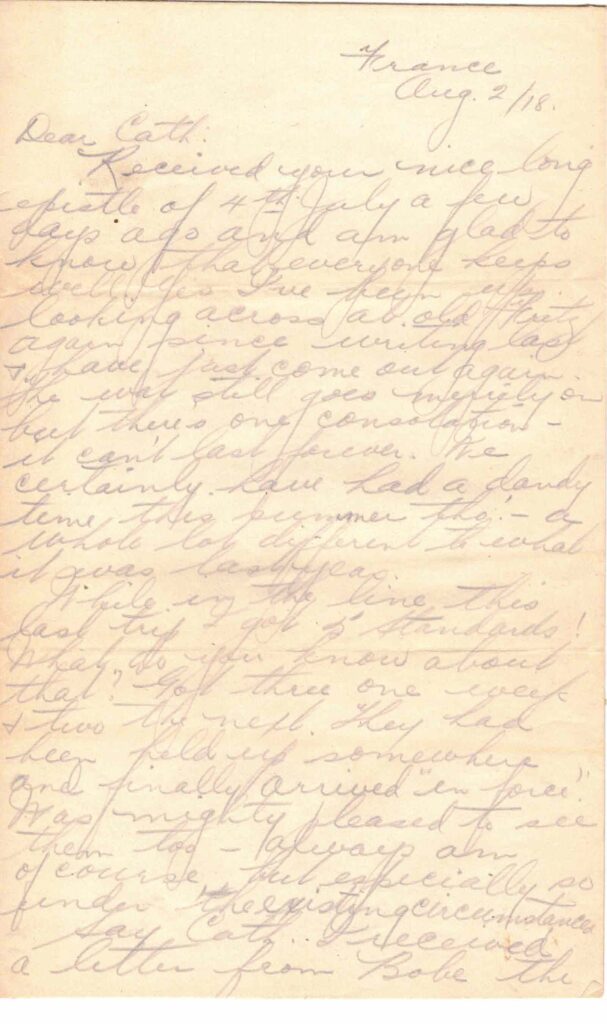 France
Aug. 2/18.
Dear Cath:
Received your nice long
epistle of 4th July a few
days ago and am glad to
know that everyone keeps
well. Yes I've been up
looking across at old Fritz
again since writing last
& have just come out again.
The war still goes merrily on
but there's one consolation -
it can't last forever. We
certainly have had a dandy
time this summer tho' - a
whole lot different to what
it was last year.
While in the line this
last trip I got 5 "Standards"!
What do you know about
that? Got three one week
& two the next. They had
been held up somewhere
and finally arrived "in force".
Was mighty pleased to see
them too - always am
of course, but especially so
under the existing circumstances
Say Cath. I received
a letter from Bobe the